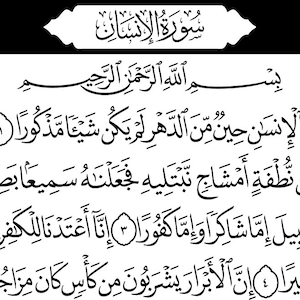 سُورَةُ الإِنسَانِ
بِسْمِ ٱللَّهِ ٱلرَّحْمَٰنِ ٱلرَّحِيمِ
ٱلْإِنسَٰنِ حِينٌ مِّنَ ٱلدَّهْرِ لَمْ يَكُن شَيْـًٔا مَّذْكُورًا ١
نُّطْفَةٍ أَمْشَاجٍ نَّبْتَلِيهِ فَجَعَلْنَٰهُ سَمِيعًۢا
إِمَّا شَاكِرًا وَإِمَّا كَفُورًا ٣ إِنَّآ أَعْتَدْنَا
٤ إِنَّ ٱلْأَبْرَارَ يَشْرَبُونَ مِن كَأْسٍ كَانَ